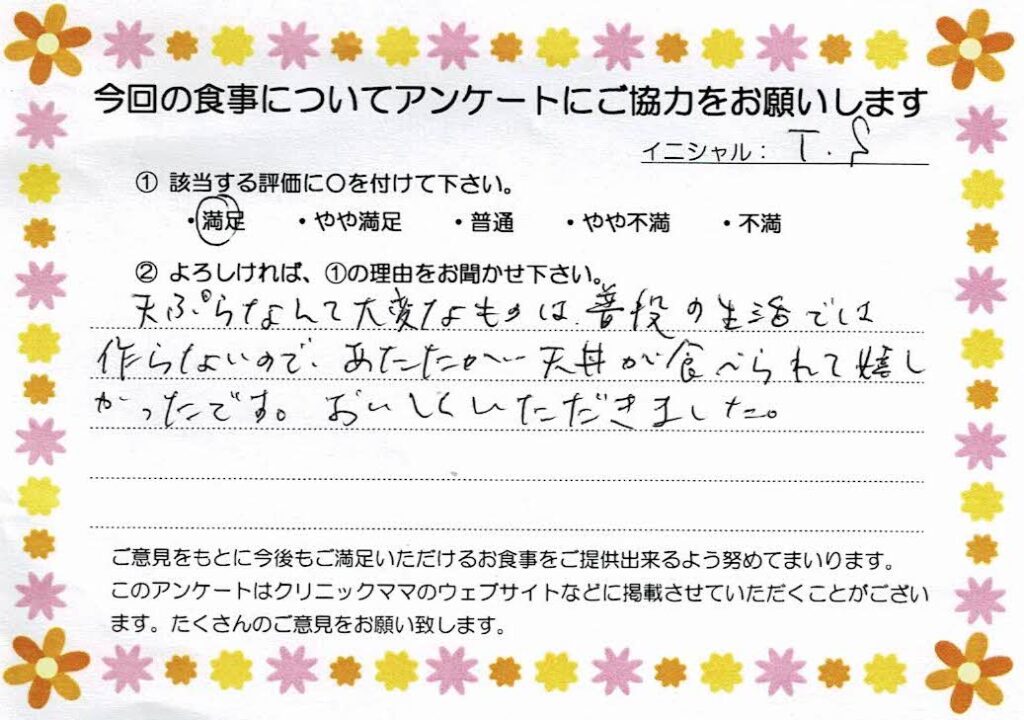 今回の食事についてアンケートにご協力をお願いします
イニシャル： T.S
① 該当する評価に〇を付けて下さい。
・満足 ・やや満足 ・普通 ・やや不満 ・不満
② よろしければ、①の理由をお聞かせ下さい。
天ぷらなんて大変なものは普段の生活では
作らないので、あたたかい天丼が食べられて嬉し
かったです。おいしくいただきました。
ご意見をもとに今後もご満足いただけるお食事をご提供出来るよう努めてまいります。
このアンケートはクリニックママのウェブサイトなどに掲載させていただくことがござい
ます。たくさんのご意見をお願い致します。